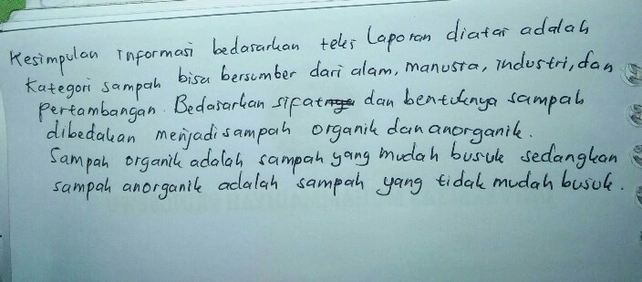 Kesimpulan Informasi bedasarkan teks Laporan diatas adalah
Kategori sampah bisa bersumber dari alam, manusia, industri, dan
pertambangan. Bedasarkan sifat dan bentuknya sampah
dibedakan menjadi sampah organik dan anorganik.
Sampah organik adalah sampah yang mudah busuk sedangkan
sampah anorganik adalah sampah yang tidak mudah busuk.